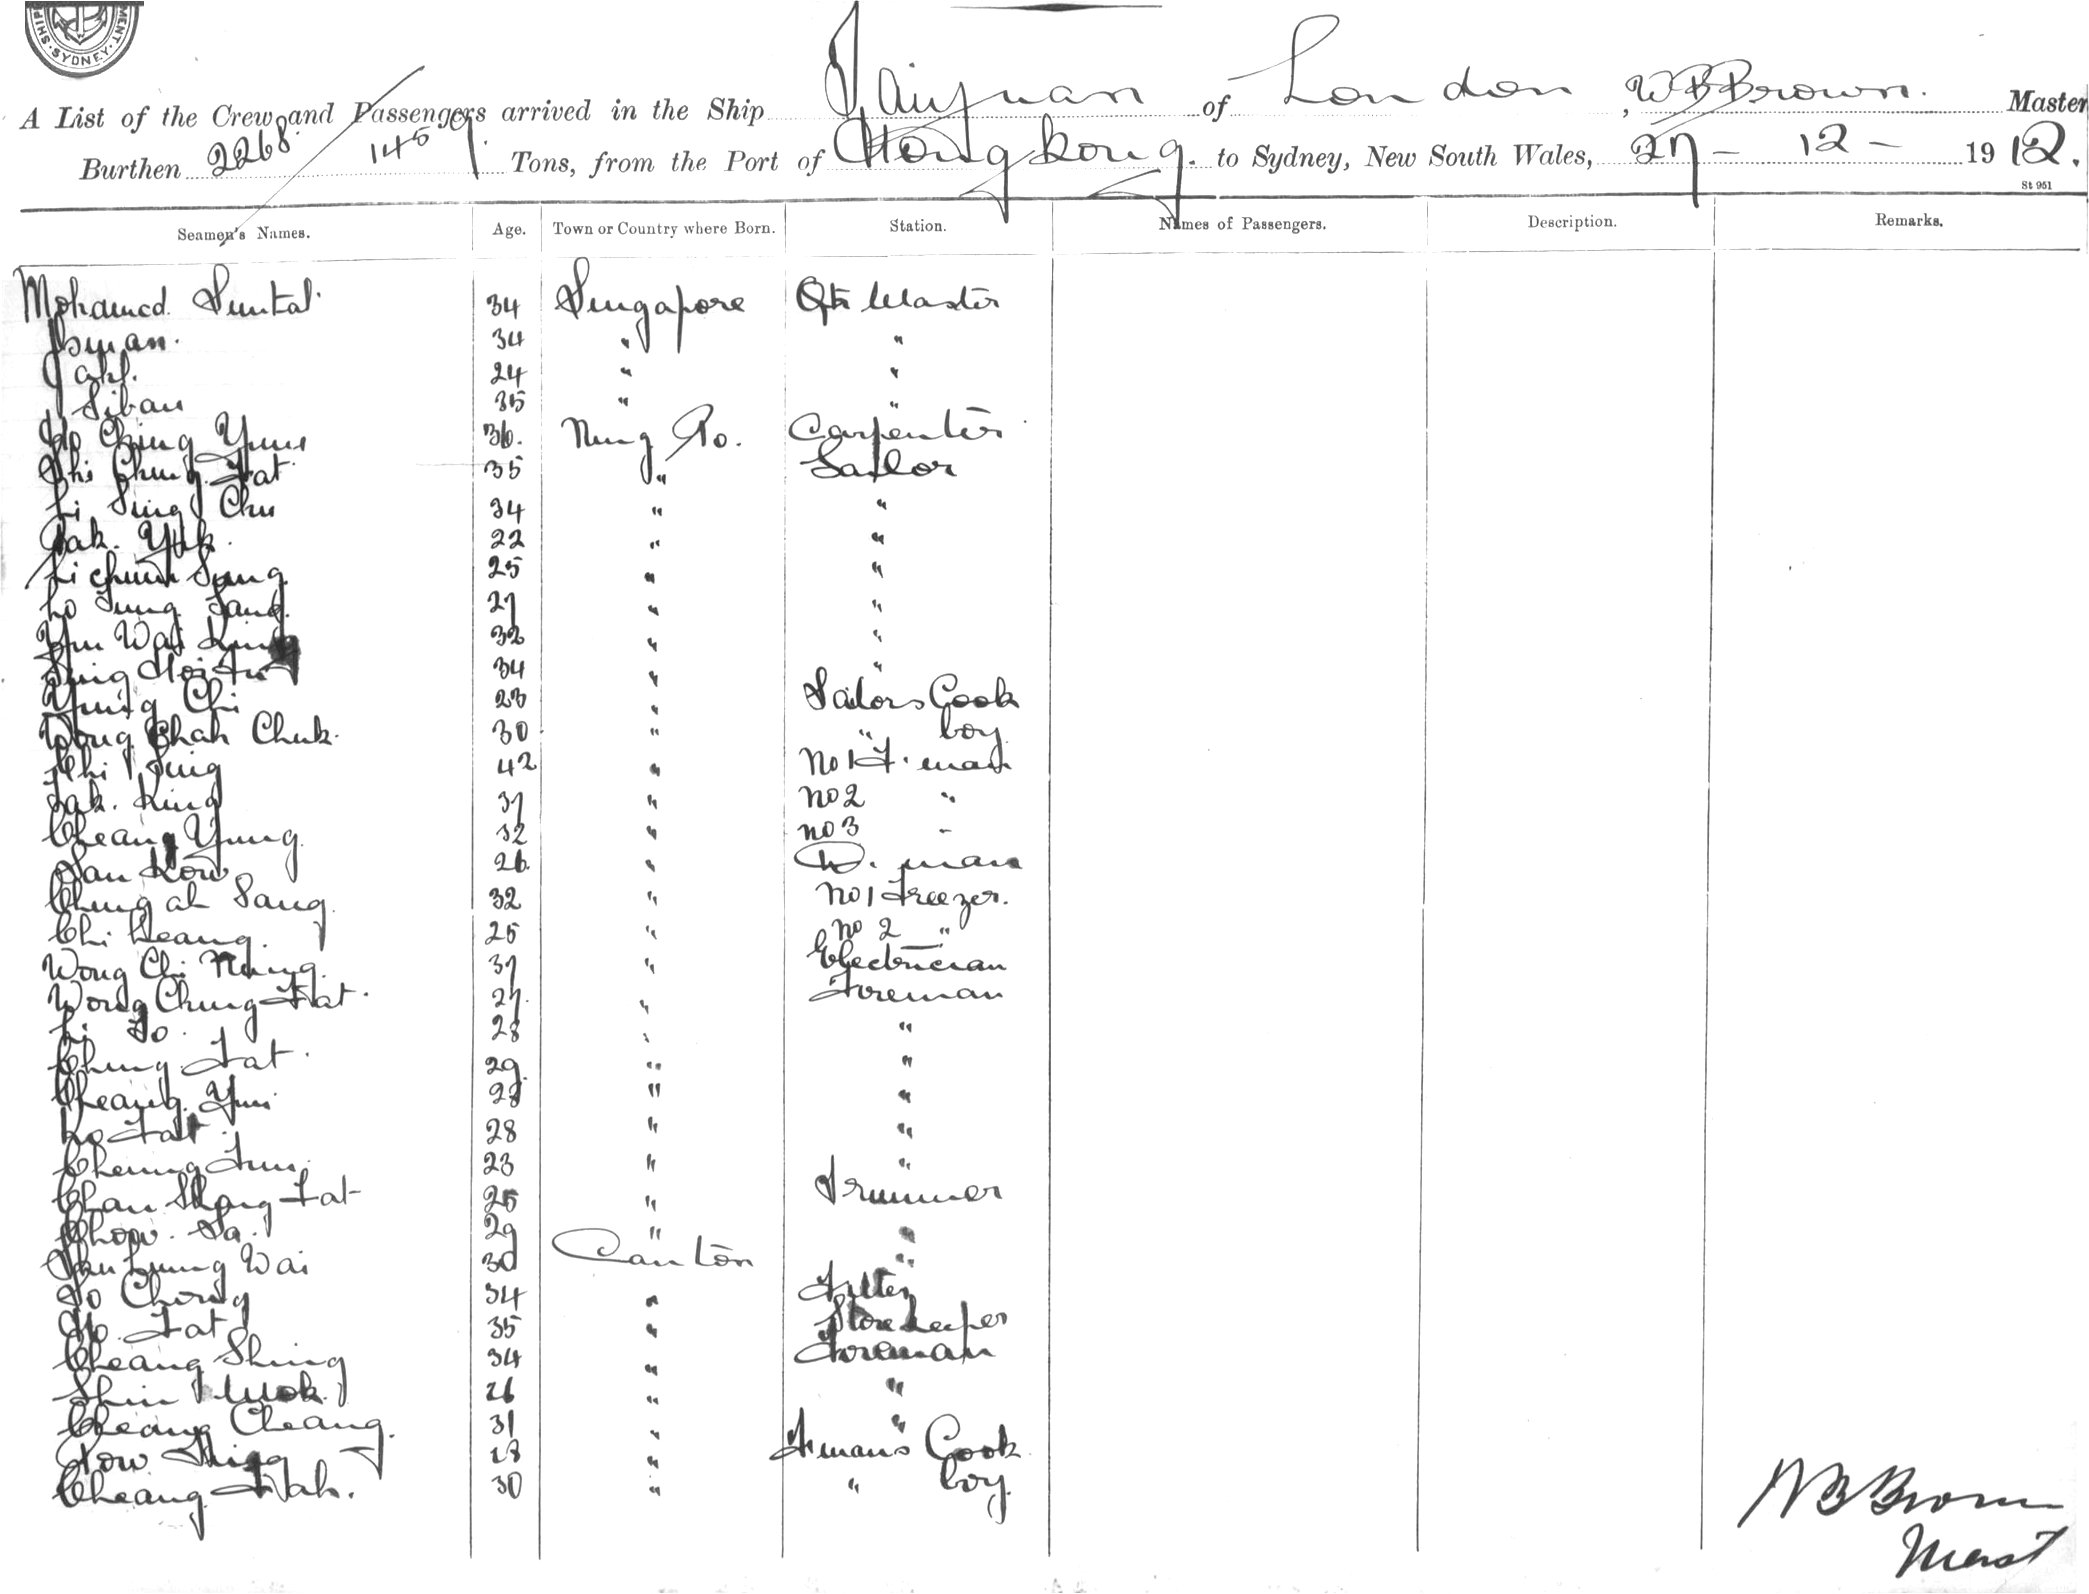 SHIPPING · SYDNEY
A List of the Crew and Passengers arrived in the Ship Taiyuan of London, W B Brown. Master
Burthen 2268/1459 Tons, from the Port of Hong Kong. to Sydney, New South Wales, 27 - 12 - 1912.
St 951
Seamen's Names. Age. Town or Country where Born. Station. Names of Passengers. Description. Remarks.
Mohamed 34 Singapore Qtr Master
Osman. 34 " "
24 " "
Siban 35 " "
Ho Ching 36. Ning Po. Carpenter
Chung Fat 35 " Sailor
Li Sing Chu 34 " "
Yuk 22 " "
Li Chun Sung 25 " "
Lo Tung Tang. 27 " "
Yu Wai King 32 " "
34 " "
Yung Chi 23 " Sailors Cook
Wong Chak Chuk. 30 " " boy
Chi Sing 42 " No 1 F. man
Tak. King 37 " No 2 "
Cheang Yung 32 " No 3 "
San Kow 26. " D. man
Chung ah Sang 32 " No 1 Freezer.
Chi Keang. 25 " No 2 "
Wong Chi Nung. 37 " Electrician
Wong Chung Fat. 27. " Foreman
Li So. 28 " "
Chung Fat. 29. " "
Cheang Yui 28 " "
Lo Fat. 28 " "
Cheung Fun. 23 " "
Chan Shang Fat 25 " Trimmer
Chow. Sa. 29 " "
Lung Wai 30 Canton "
So Chong 34 " Fitter
Ho. Fat 35 " Store Keeper
Cheang Shing 34 " Foreman
Shin Mok. 26 " "
Cheang Cheang. 31 " "
Tow Shing 28 " F mans Cook
Cheang Wah. 30 " " boy.
W B Brown
Mast